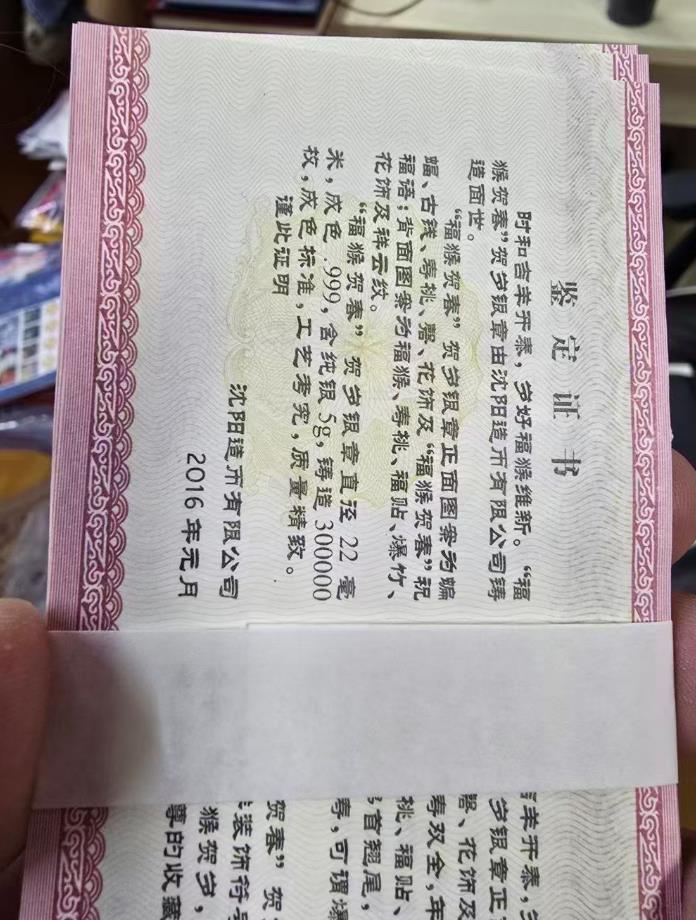 鉴定证书
时和吉羊开泰，岁好福猴维新。“福
猴贺春”贺岁银章由沈阳造币有限公司铸
造面世。
“福猴贺春”贺岁银章正面图案为蝙
蝠、古钱、寿桃、磬、花饰及“福猴贺春”祝
福语；背面图案为福猴、寿桃、福贴、爆竹、
花饰及祥云纹。
“福猴贺春”贺岁银章直径 22 毫
米，成色 .999，含纯银 5g，铸造 300000
枚，成色标准，工艺考究，质量精致。
谨此证明
沈阳造币有限公司
2016 年元月
吉羊开泰，
岁银章正
磬、花饰及
寿双全，年
桃、福贴、
首翘尾，
寿，可谓爆
贺春”贺
装饰符号
猴贺岁，
尊的收藏